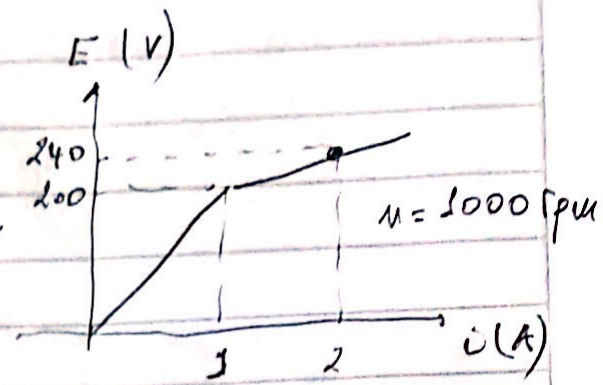 E (V)
240
200
n = 1000 rpm
1
2
i (A)